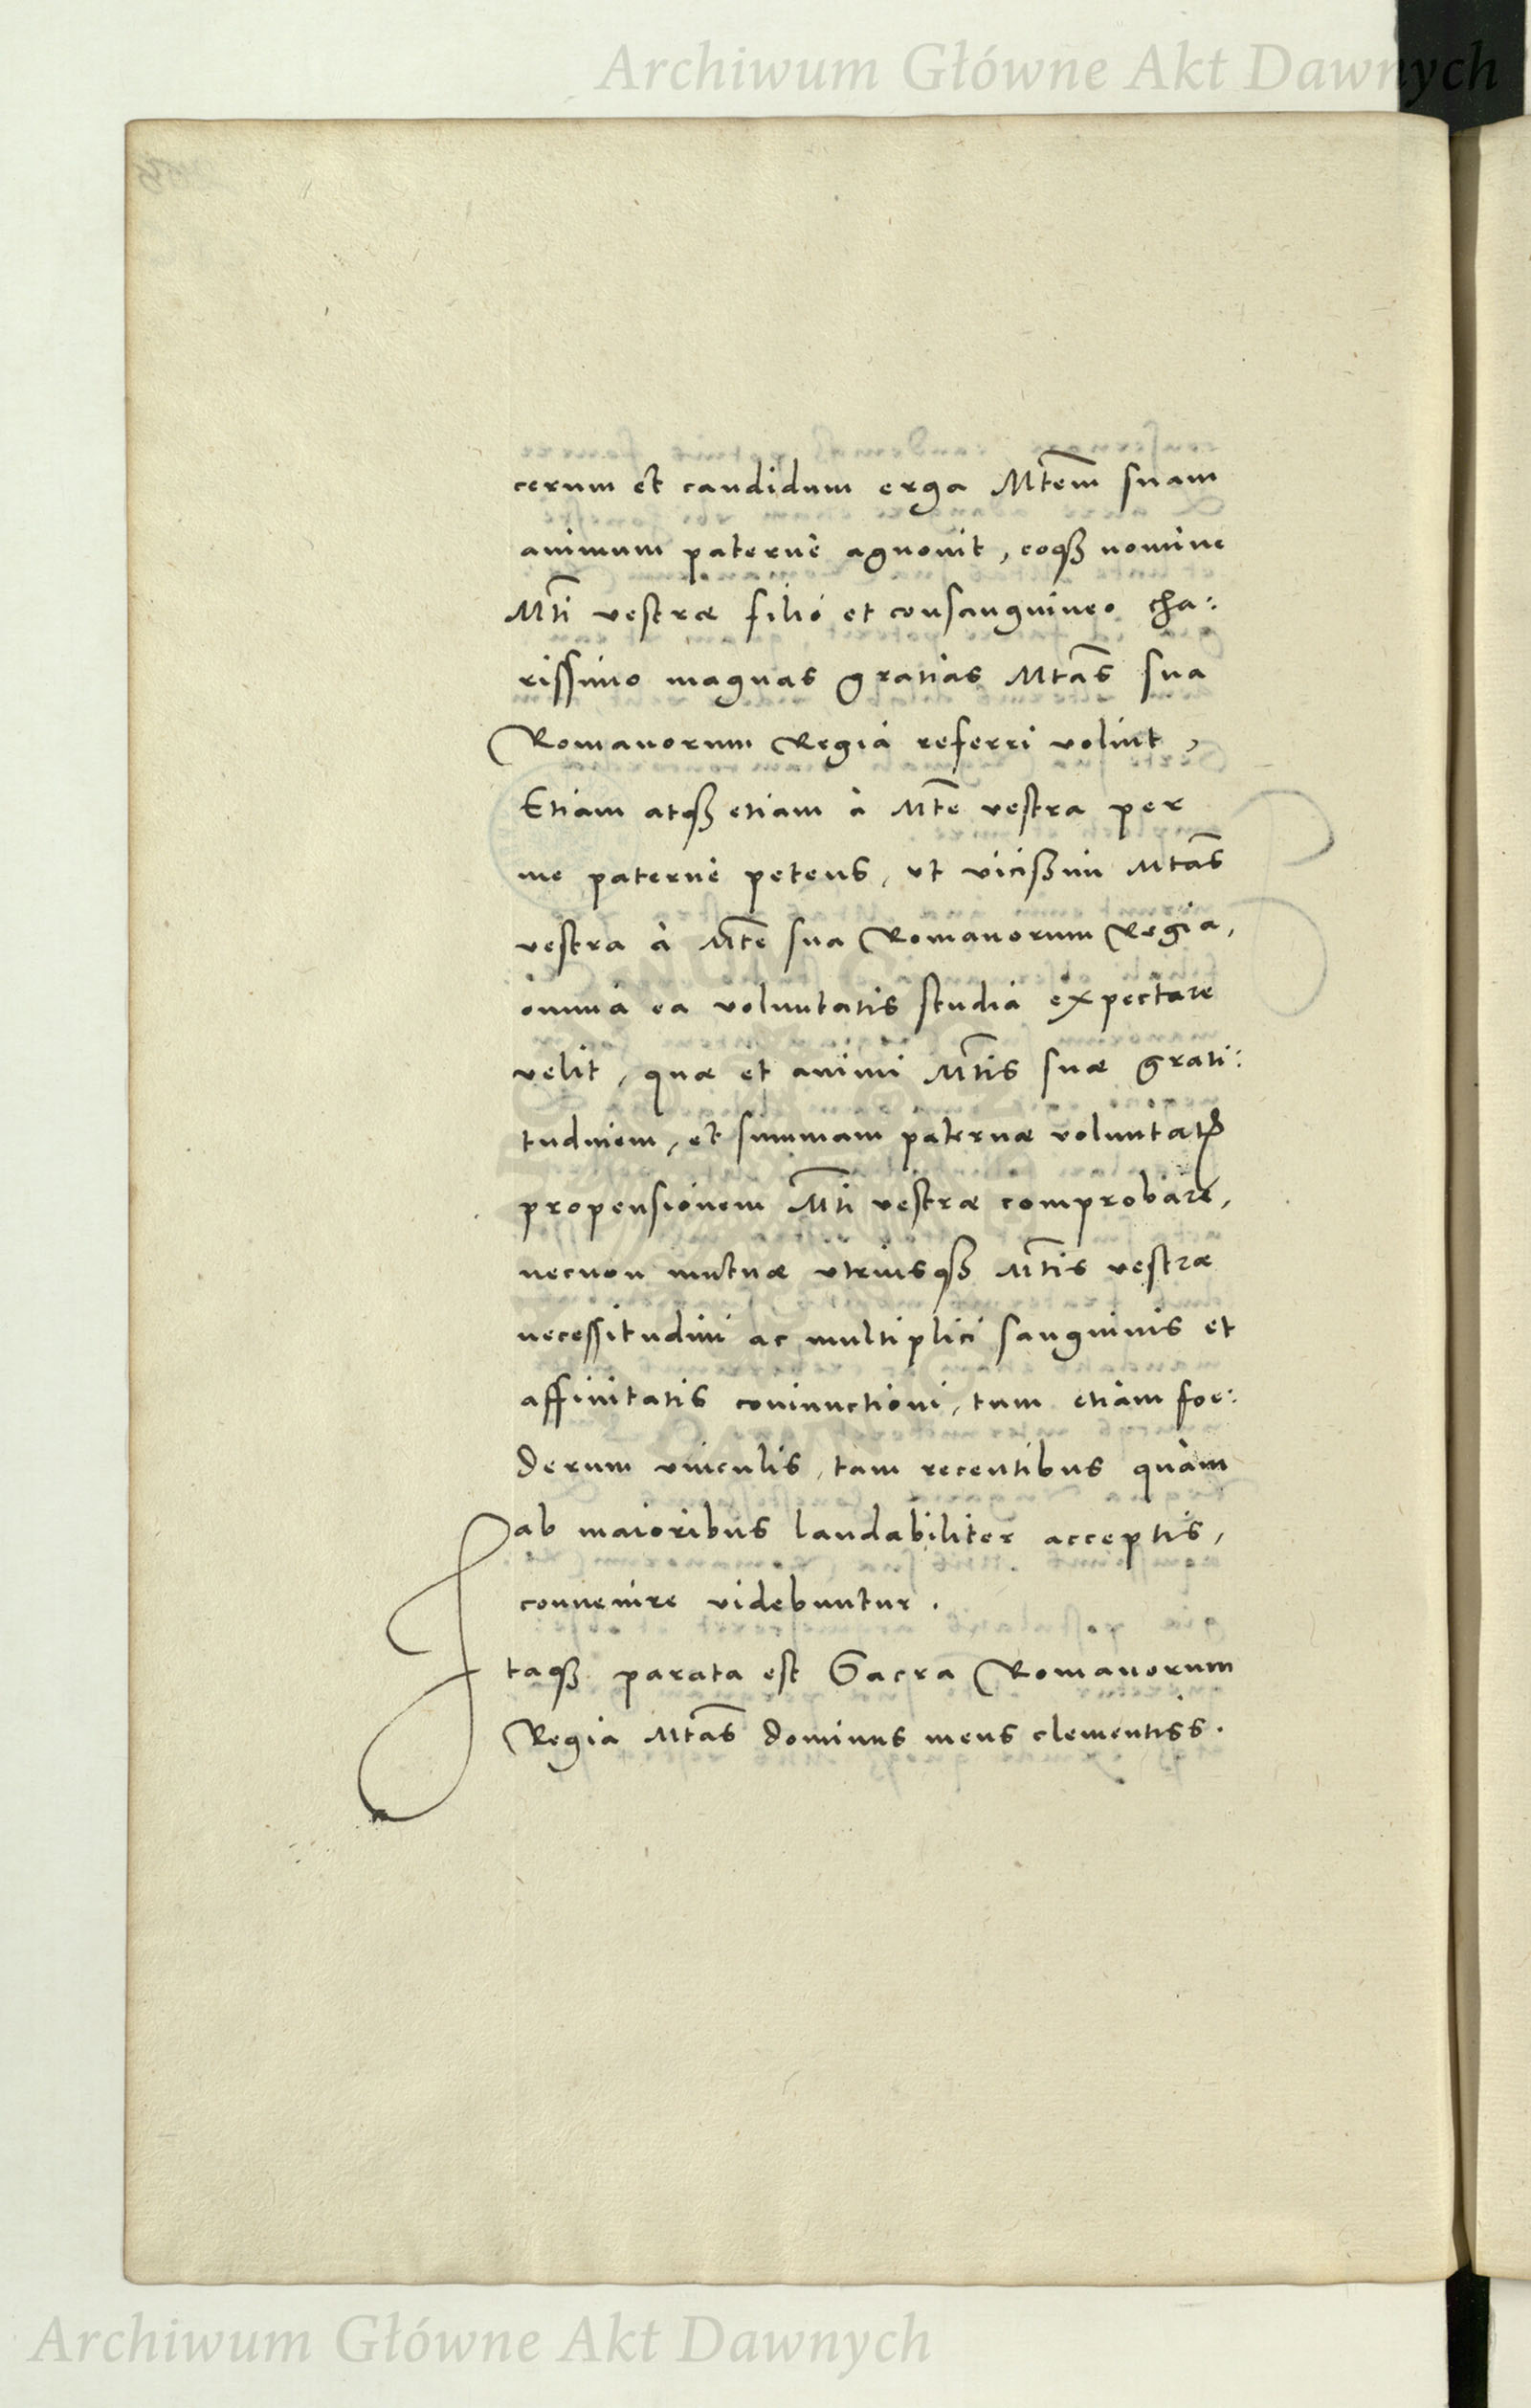 Archiwum Główne Akt Dawnych
cerum et candidum erga Mtem suam
animum paternè agnovit, eoqꝫ nomine
Mti vestræ filio et consanguineo cha:
rissimo magnas gratias Mtas sua
Romanorum Regia referri voluit,
Etiam atqꝫ etiam à Mte vestra per
me paternè petens, ut vicissim Mtas
vestra à Mte sua Romanorum Regia,
omnia ea voluntatis studia expectare
velit, quæ et animi Mtis suæ grati:
tudinem, et summam paternæ voluntatis
propensionem Mti vestræ comprobare,
necnon mutuæ utriusqꝫ Mtis vestræ
necessitudini ac multiplici sanguinis et
affinitatis coniunctioni, tum etiam foe:
derum vinculis, tam recentibus quàm
ab maioribus laudabiliter acceptis,
convenire videbuntur.
Itaqꝫ parata est Sacra Romanorum
Regia Mtas dominus meus clementiss.
Archiwum Główne Akt Dawnych